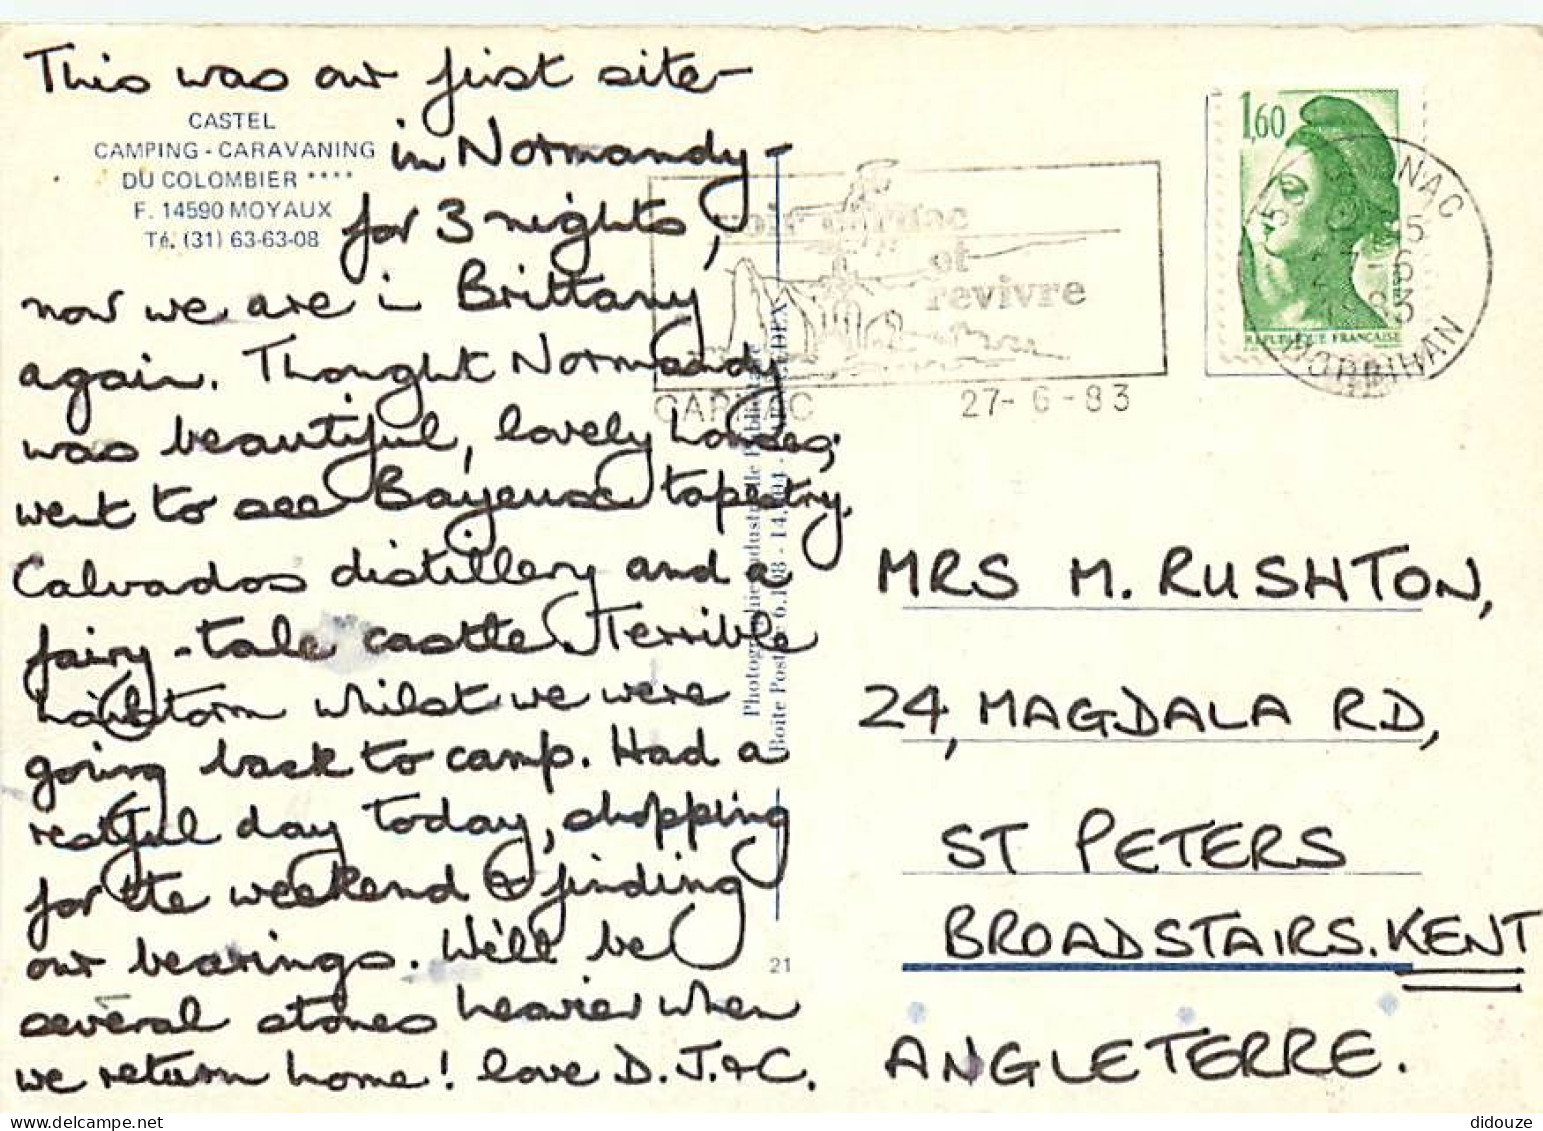 This was our first site-
CASTEL
CAMPING - CARAVANING
DU COLOMBIER ****
F. 14590 MOYAUX
Té. (31) 63-63-08
in Normandy-
for 3 nights,
now we are in Brittany
again. Thought Normandy
was beautiful, lovely houses;
went to see Bayeux tapestry.
Calvados distillery and a
fairy-tale castle. Terrible
hailstorm whilst we were
going back to camp. Had a
restful day today, shopping
for the weekend & finding
our bearings. We'll be
several stones heavier when
we return home! love D. J. & C.
voir carnac
et
revivre
CARNAC 27-6-83
1,60
REPUBLIQUE FRANÇAISE
CARNAC
27-6
1983
MORBIHAN
Photographie Industrielle
Boite Postale 6.198 - 14.
CEDEX
21
MRS M. RUSHTON,
24, MAGDALA RD,
ST PETERS
BROADSTAIRS. KENT
ANGLETERRE.
didouze